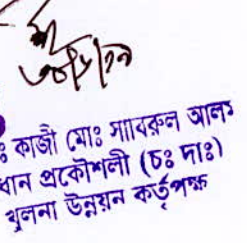 ঃ কাজী মোঃ সাাবরুল আলম
ধান প্রকৌশলী (চঃ দাঃ)
খুলনা উন্নয়ন কর্তৃপক্ষ